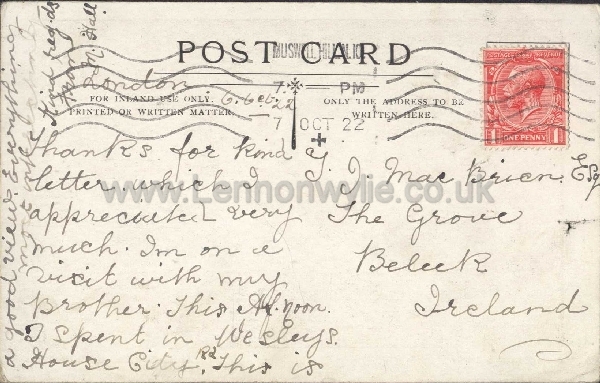 POST CARD
MUSWELL HILL
7. PM
7 OCT 22
POSTAGE
ONE PENNY
FOR INLAND USE ONLY.
PRINTED OR WRITTEN MATTER.
ONLY THE ADDRESS TO BE
WRITTEN HERE.
London
Thanks for kind
letter which I
appreciated very
much. Im on a
visit with my
Brother. This Af.noon.
I spent in Wesleys.
House City Rd This is
a good view. Everything
Kind reg-ds
from
M. Hall
Mac Brien. Esq
The Grove
Beleek
Ireland
www.Lennonwylie.co.uk